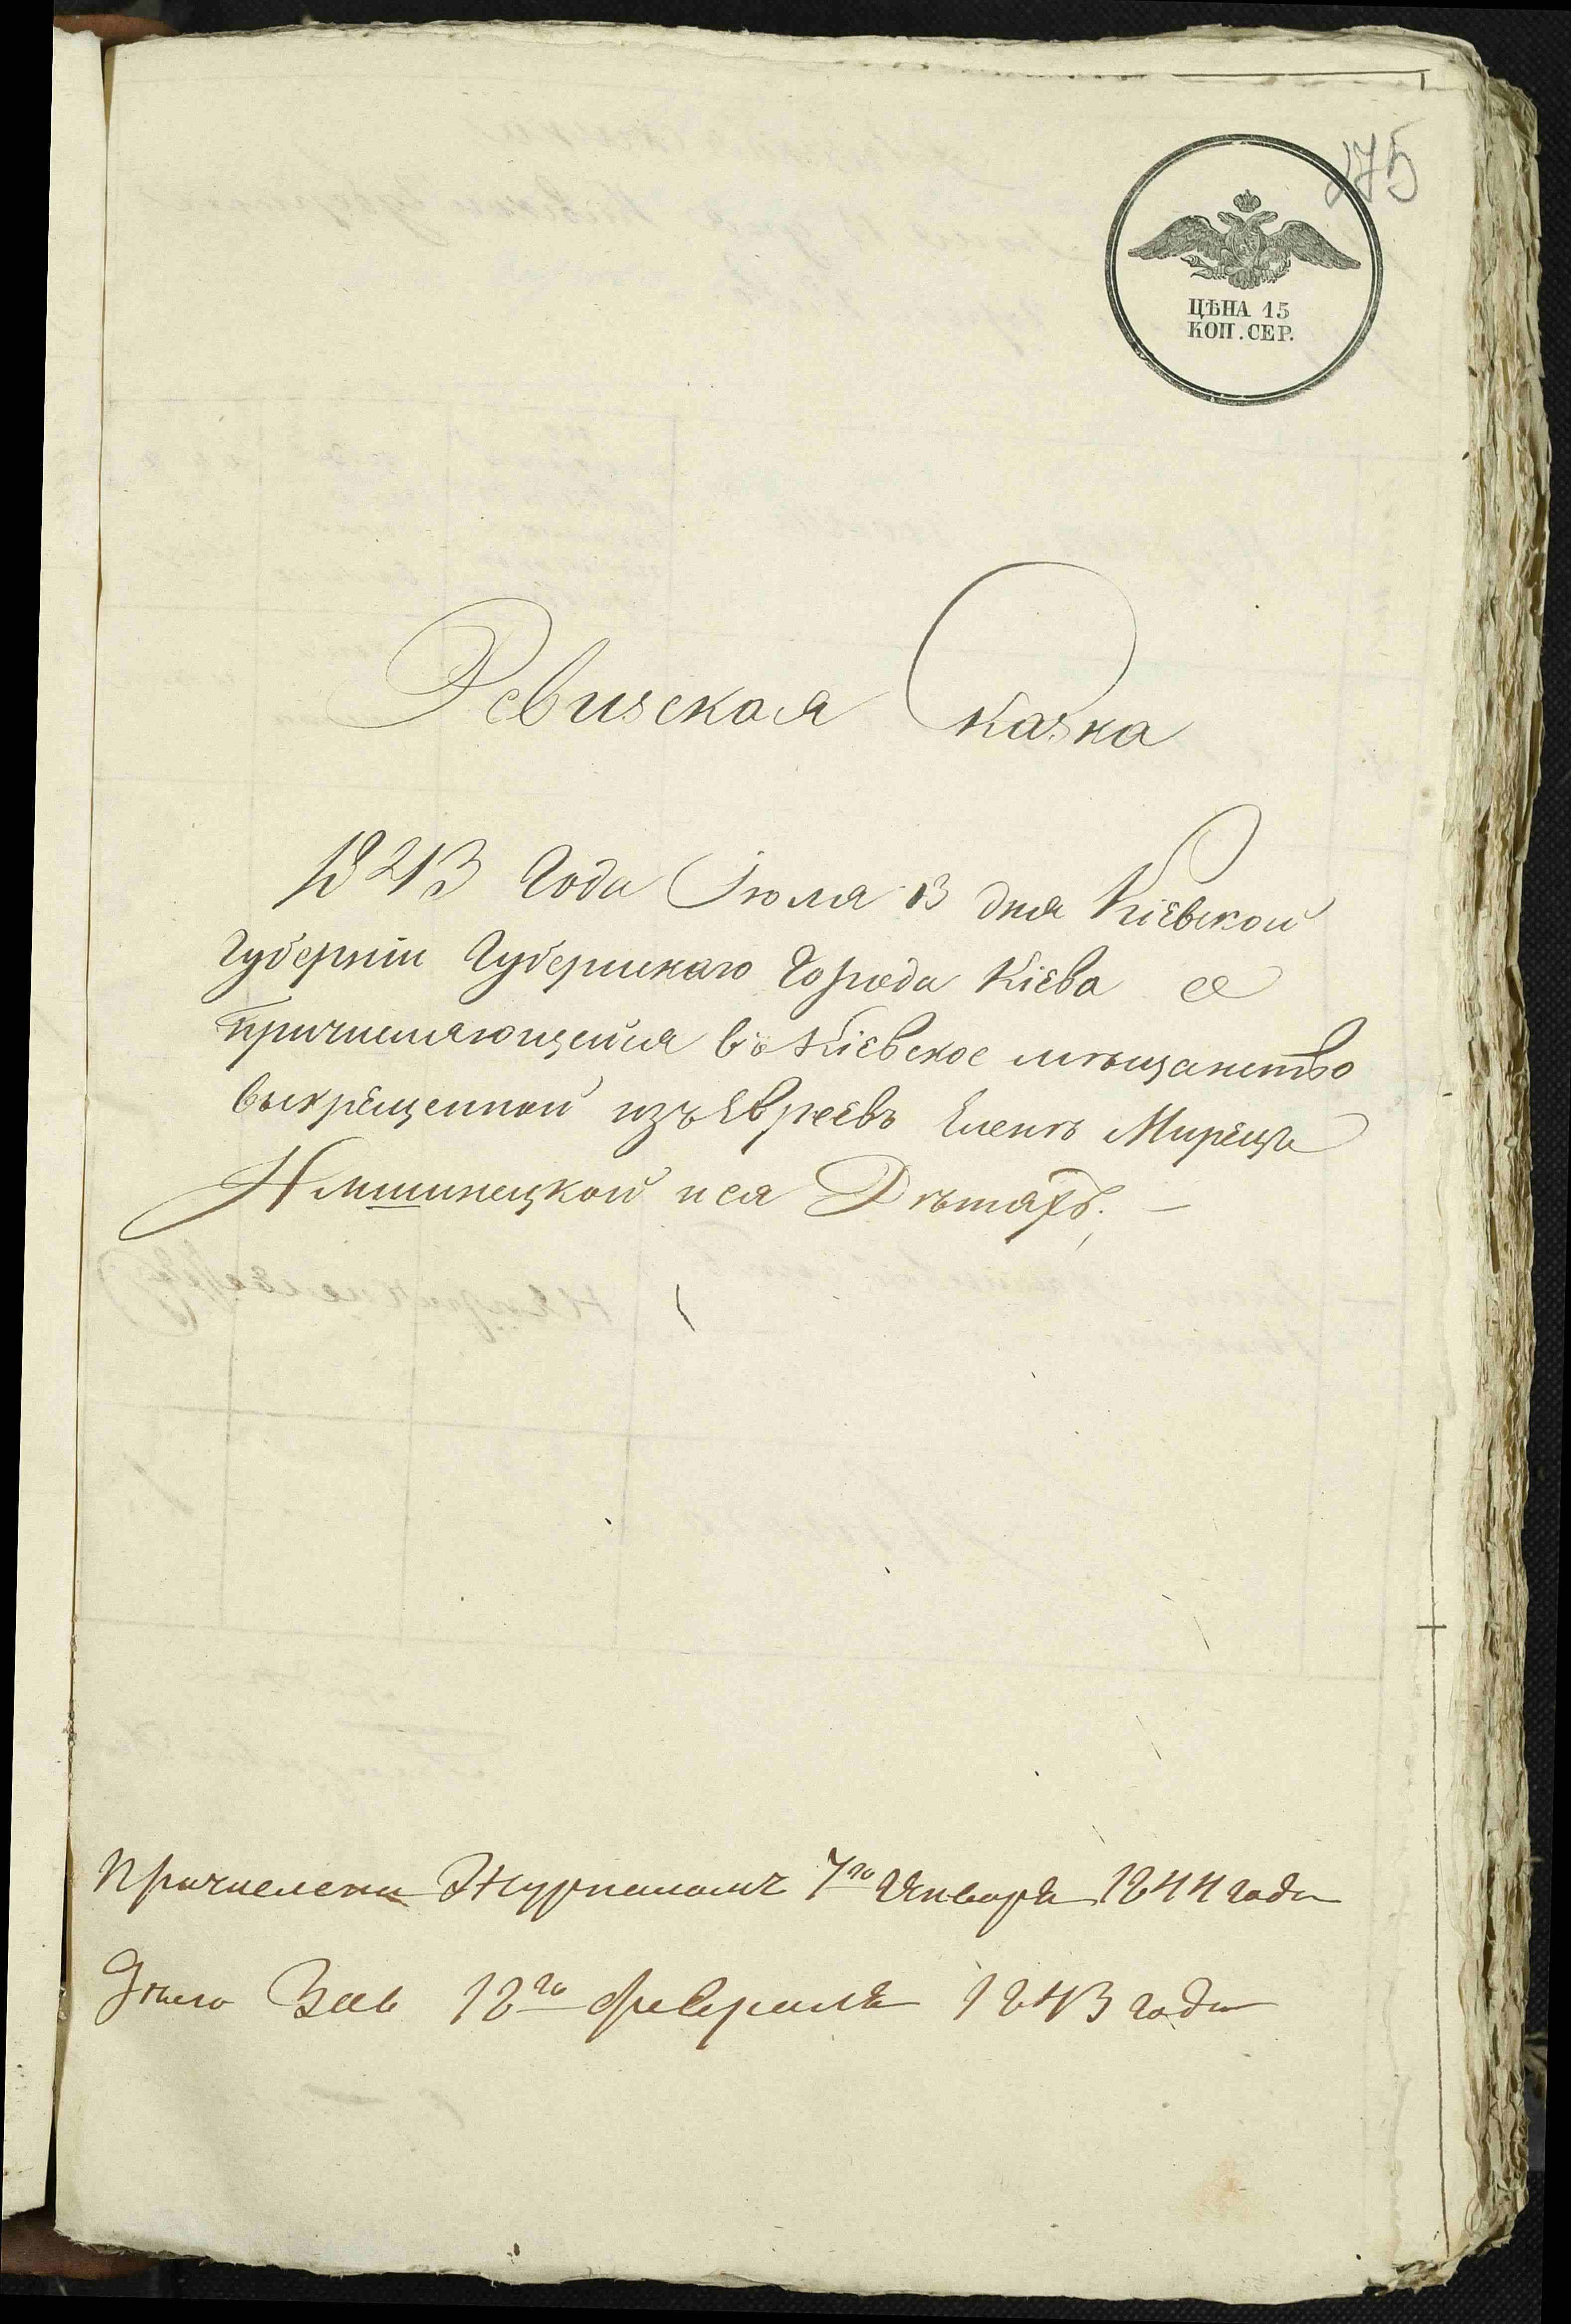 275
ЦѢНА 15
КОП. СЕР.
Ревизская Сказка
1843 Года Іюля 13 дня Кіевской
Губерніи Губернскаго Города Кіева о
причисляющейся въ Кіевское мѣщанство
выкрещенной изъ Евреевъ Еленѣ
и ея Дѣтяхъ.
Причислена Журналомъ 7го Января 1844 года
12го февраля 1843 года